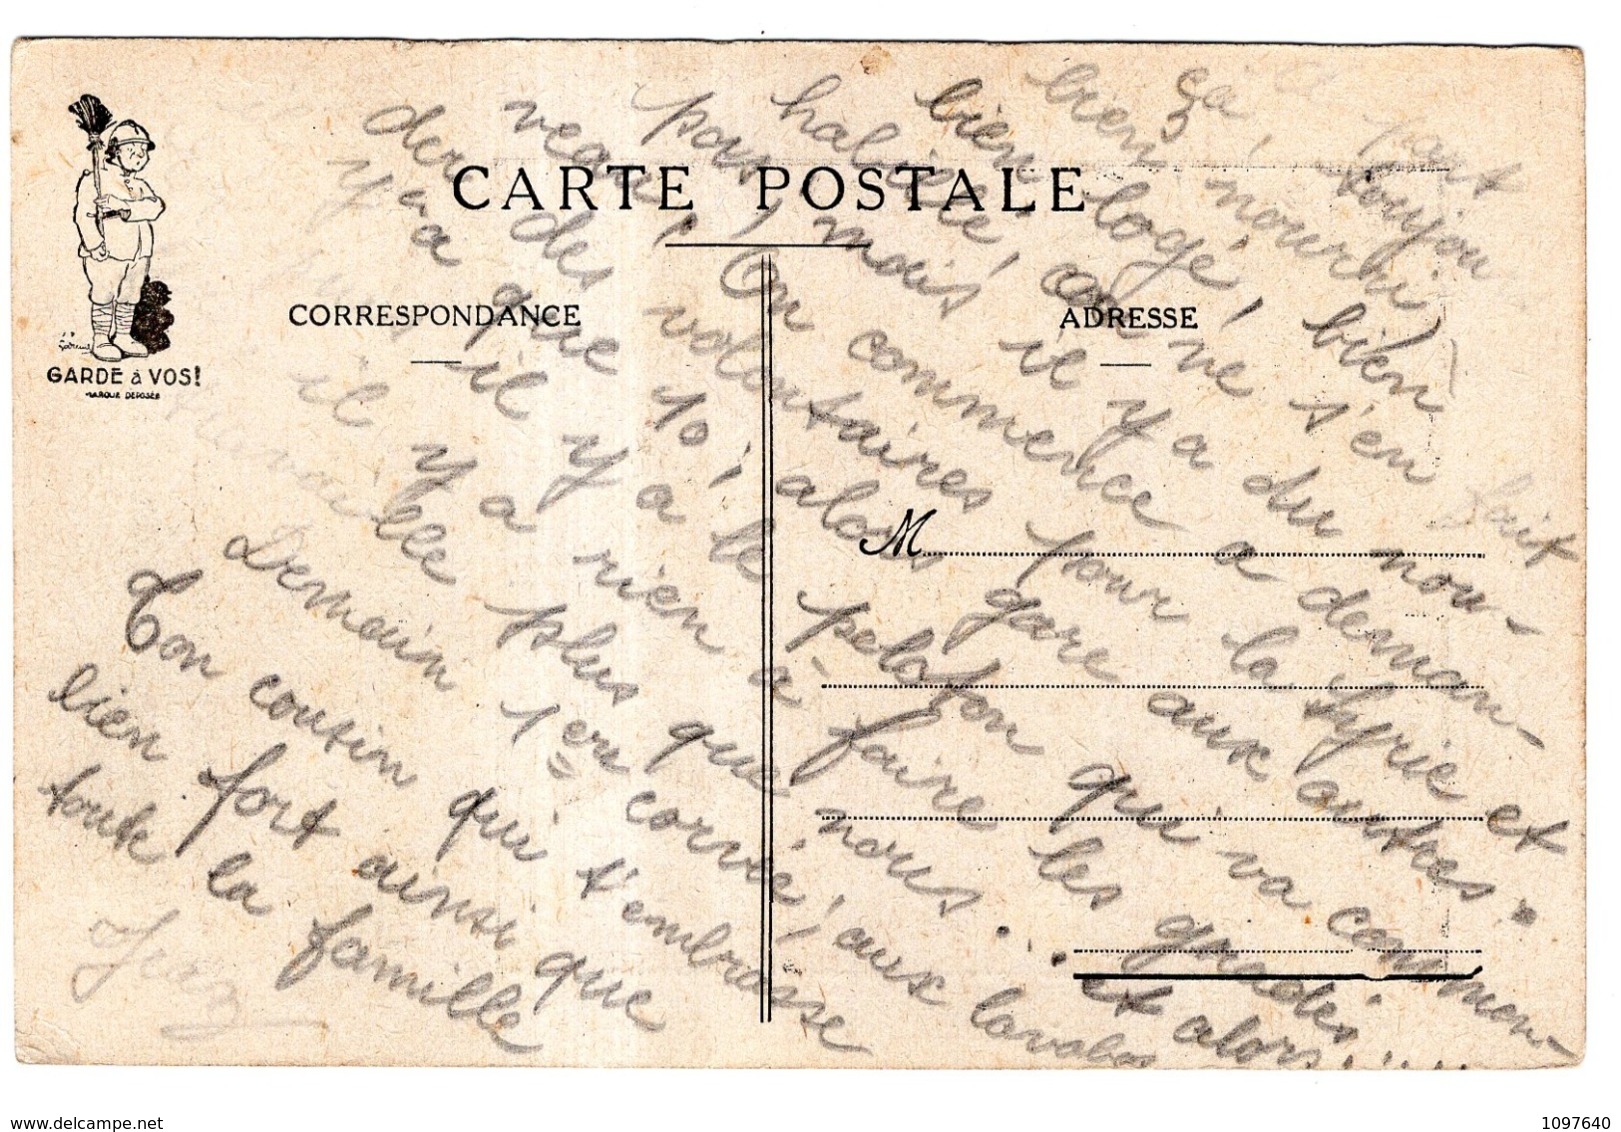 CARTE POSTALE
CORRESPONDANCE
ADRESSE
GARDE à VOS!
MARQUE DÉPOSÉE
M
Ça, part toujou
bien nourri,
bien logé, bien
habillé, on ne s'en fait
pas, mais il y a du nou-
veau, On commence a deman-
der des volontaires pour la Syrie et
y va que 10, alors gare aux autres.
il y a le peloton qui va commen-
il y a rien à faire les gradés....
travaille plus que nous . . . et alors....
Demain 1ere corvée, aux lavabos
Ton cousin qui t'embrasse
bien fort ainsi que
toute la famille
1097640